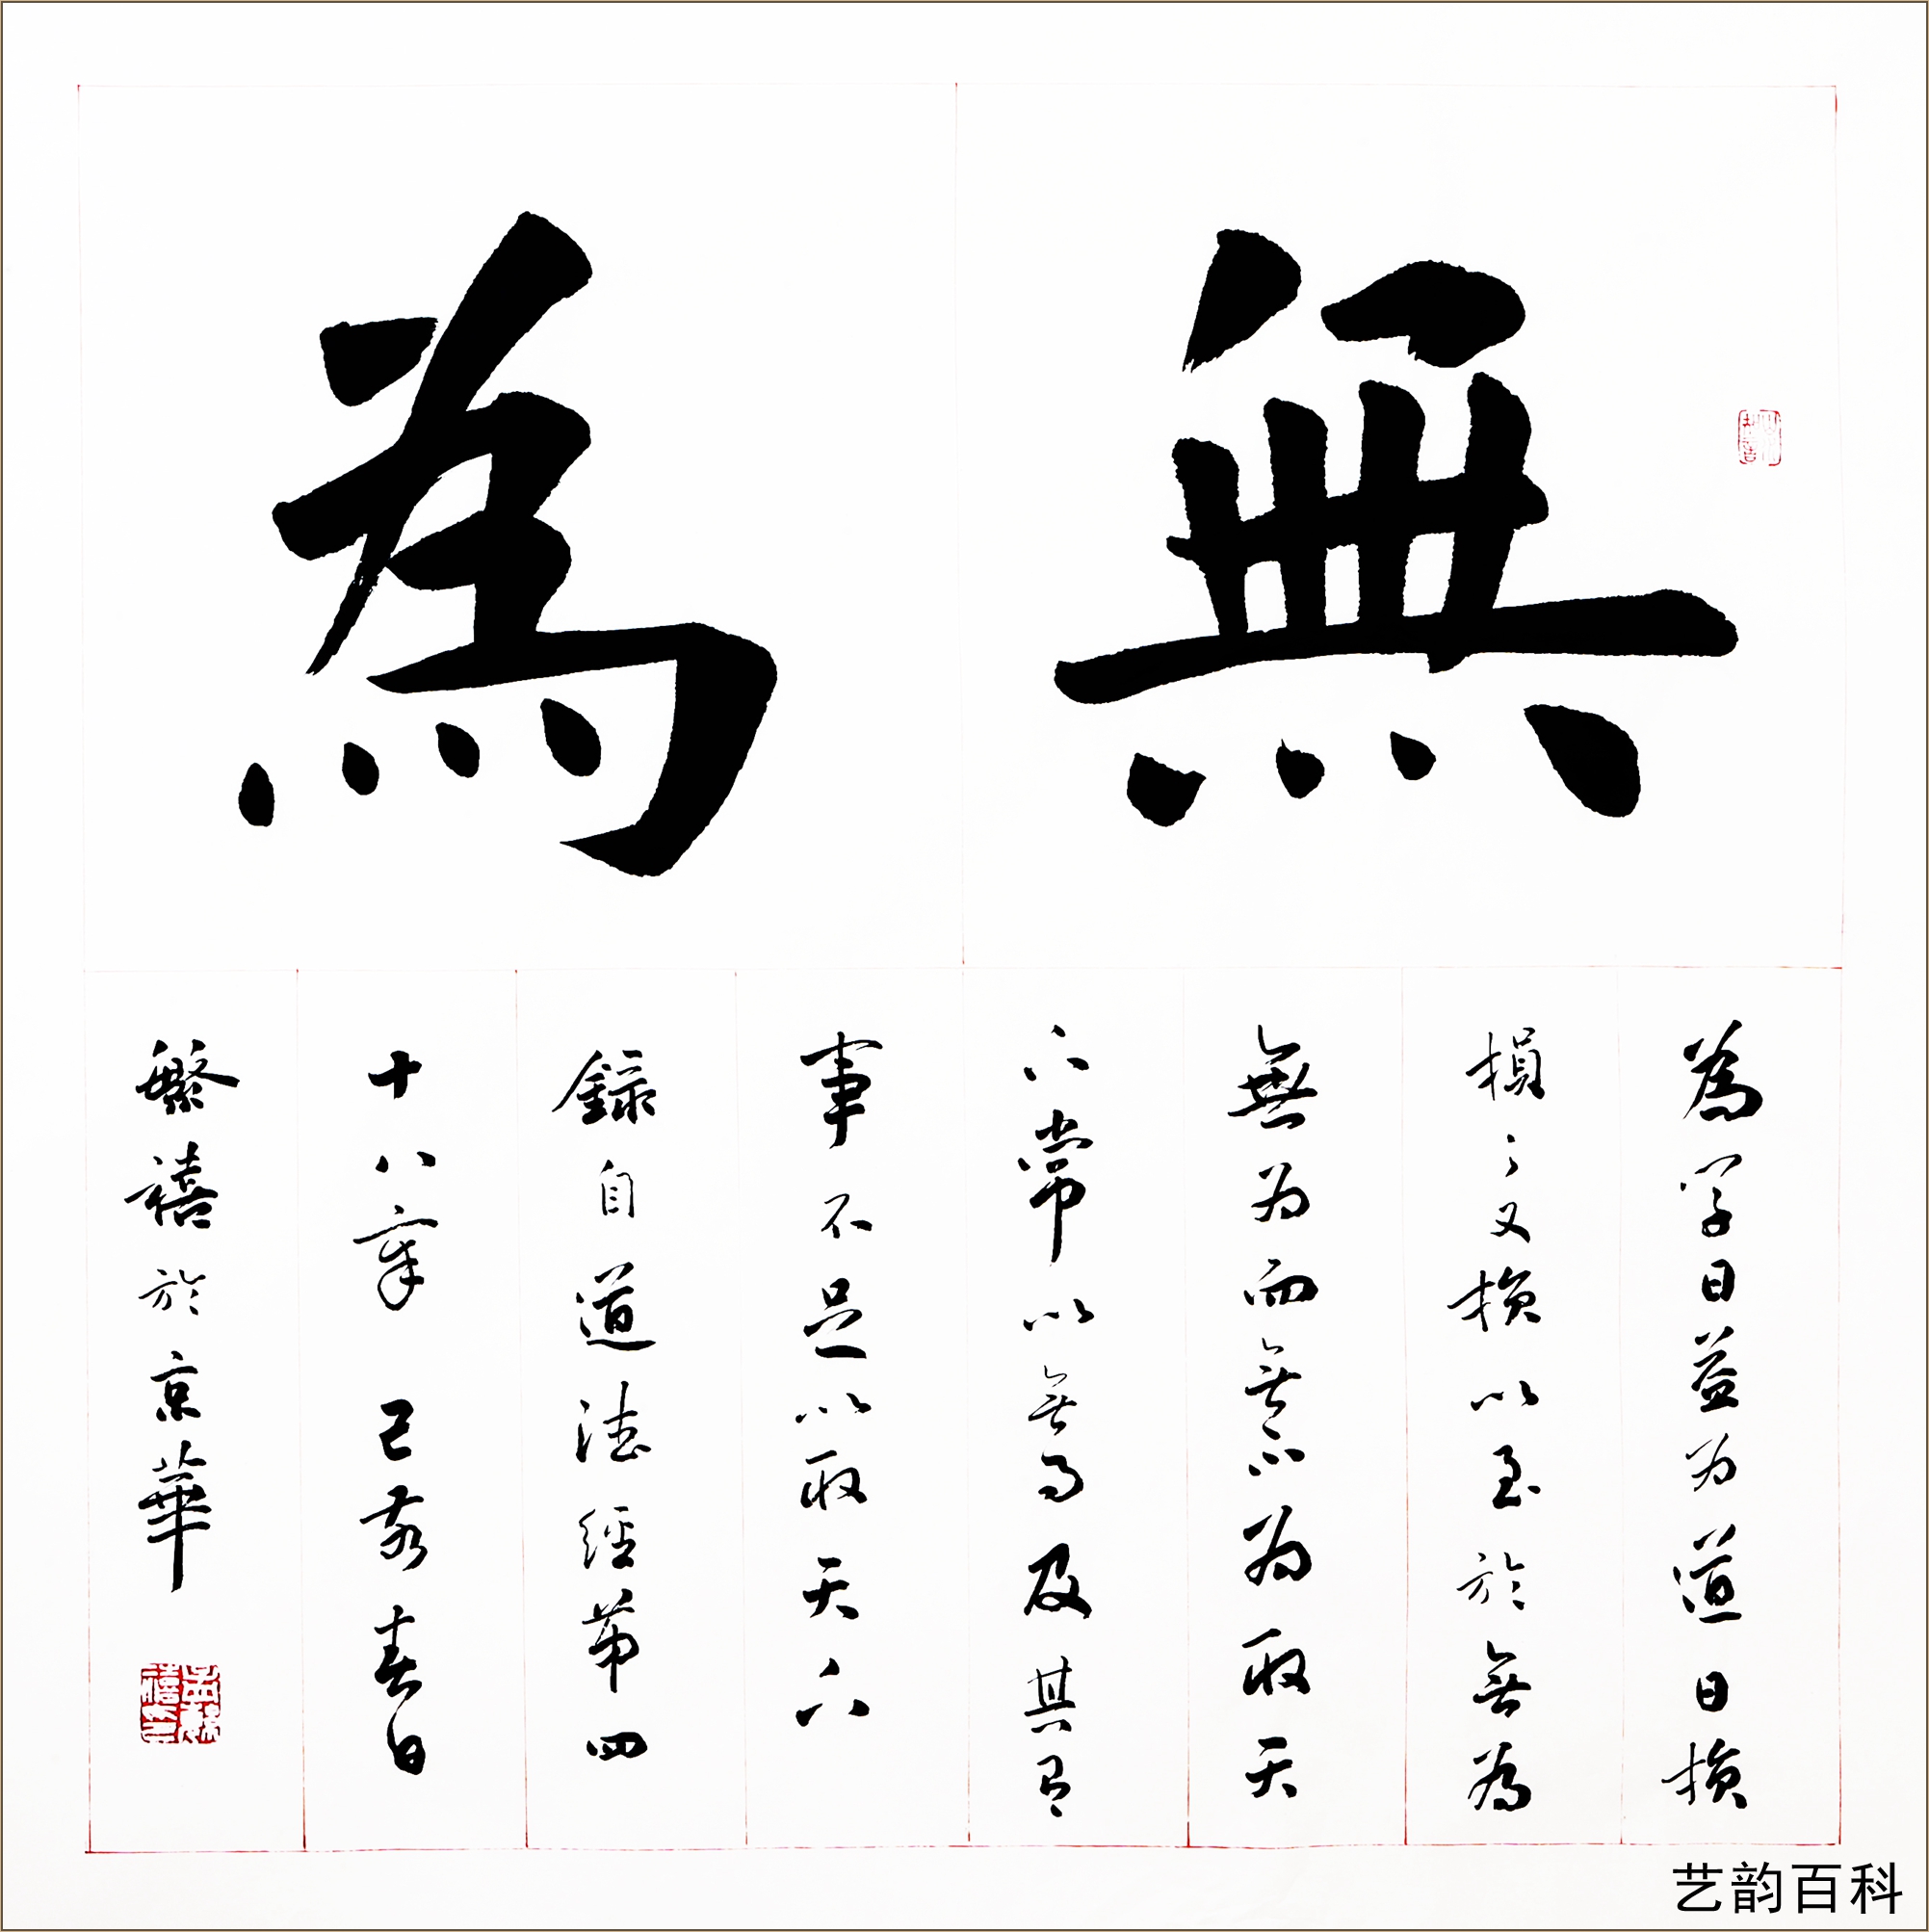 無為
為学日益为道日損
損之又損以至於無為
無为而無不为取天
下常以無事及其有
事不足以取天下
錄自道德経第四
十八章 己亥春日
繁禧於京華
艺韵百科